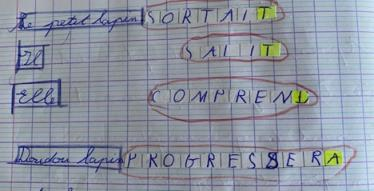 Le petit lapin SORTAIT
Il SALIT
Elle COMPREND
Doudou lapin PROGRESSERA